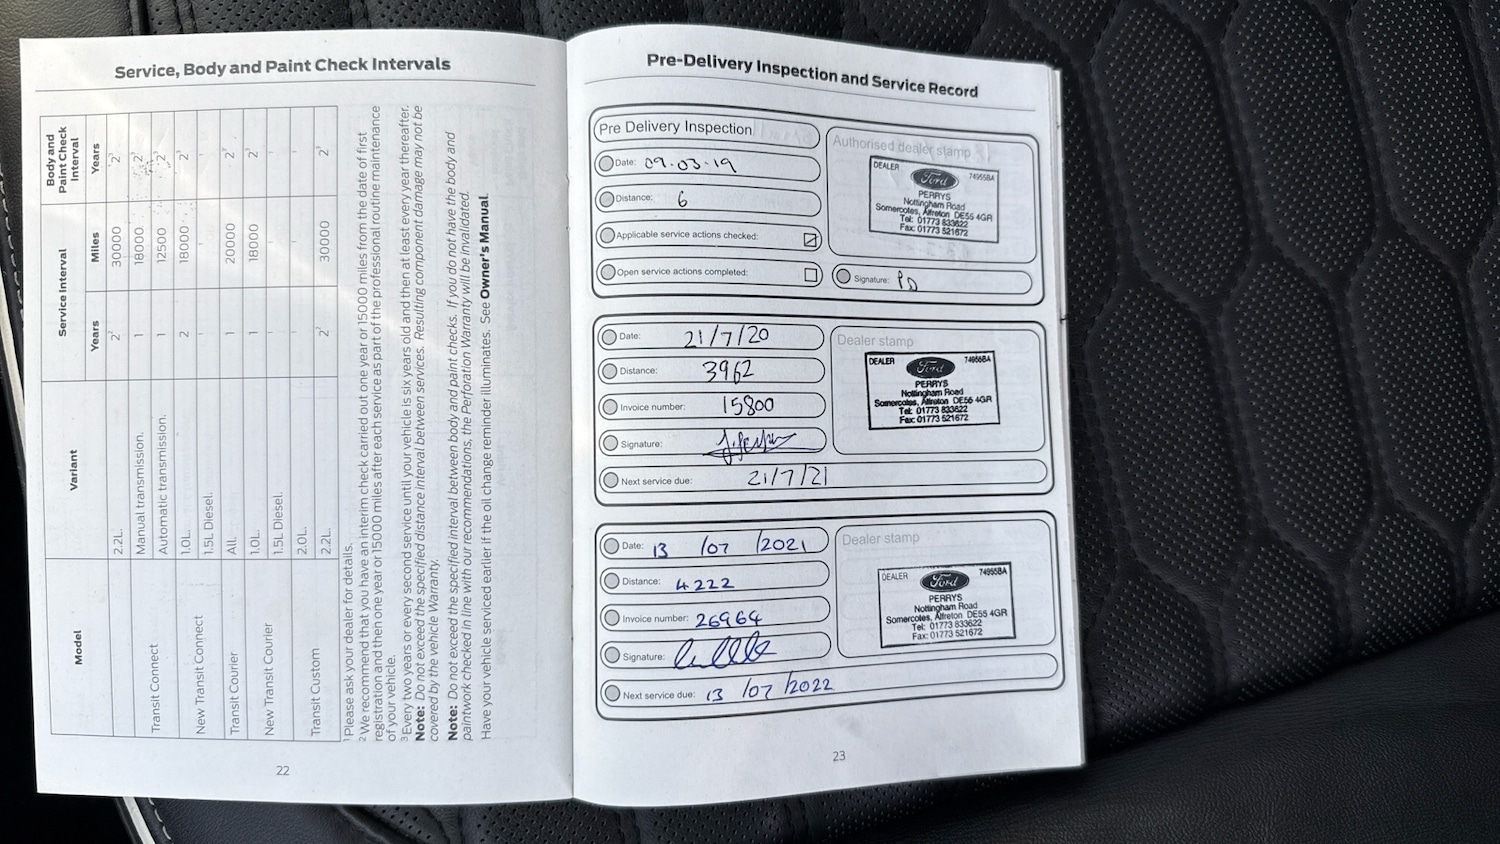 Service, Body and Paint Check Intervals
Model
Variant
Service Interval
Body and Paint Check Interval
Years
Miles
Years
2.2L.
2²
30000
2³
Transit Connect
Manual transmission.
1
18000
2³
Automatic transmission.
1
12500
2³
New Transit Connect
1.0L.
2
18000
2³
1.5L Diesel.
1
1
1
Transit Courier
All.
1
20000
2³
New Transit Courier
1.0L.
1
18000
2³
1.5L Diesel.
1
1
1
Transit Custom
2.0L.
1
1
1
2.2L.
2²
30000
2³
¹ Please ask your dealer for details.
² We recommend that you have an interim check carried out one year or 15000 miles from the date of first
registration and then one year or 15000 miles after each service as part of the professional routine maintenance
of your vehicle.
³ Every two years or every second service until your vehicle is six years old and then at least every year thereafter.
Note: Do not exceed the specified distance interval between services. Resulting component damage may not be
covered by the vehicle Warranty.
Note: Do not exceed the specified interval between body and paint checks. If you do not have the body and
paintwork checked in line with our recommendations, the Perforation Warranty will be invalidated.
Have your vehicle serviced earlier if the oil change reminder illuminates. See Owner's Manual.
22
Pre-Delivery Inspection and Service Record
Pre Delivery Inspection
Date: 09.03.19
Distance: 6
Applicable service actions checked:
Open service actions completed:
Authorised dealer stamp
DEALER
Ford
74955BA
PERRYS
Nottingham Road
Somercotes, Alfreton DE55 4GR
Tel: 01773 833622
Fax: 01773 521672
Signature: PD
Date: 21/7/20
Distance: 3962
Invoice number: 15800
Signature:
Next service due: 21/7/21
Dealer stamp
DEALER
Ford
74955BA
PERRYS
Nottingham Road
Somercotes, Alfreton DE55 4GR
Tel: 01773 833622
Fax: 01773 521672
Date: 13 /07 /2021
Distance: 4222
Invoice number: 26964
Signature:
Next service due: 13 /07 /2022
Dealer stamp
DEALER
Ford
74955BA
PERRYS
Nottingham Road
Somercotes, Alfreton DE55 4GR
Tel: 01773 833622
Fax: 01773 521672
23